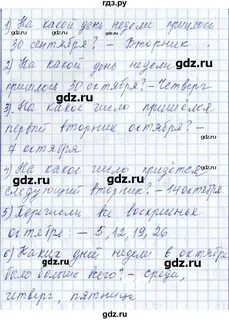 1) На какой день недели пришлось
30 сентября? – Вторник.
2) На какой день недели
пришлось 30 октября? – Четверг
3) На какое число пришёлся
первый вторник октября? –
7 октября
4) На какое число придётся
следующий вторник? – 14 октября
5) Перечисли все воскресенья
октября. – 5, 12, 19, 26
6) Каких дней недели в октябре
было больше всего? – среда,
четверг, пятница
gdz.ru gdz.ru
gdz.ru gdz.ru
gdz.ru gdz.ru
gdz.ru gdz.ru
gdz.ru gdz.ru